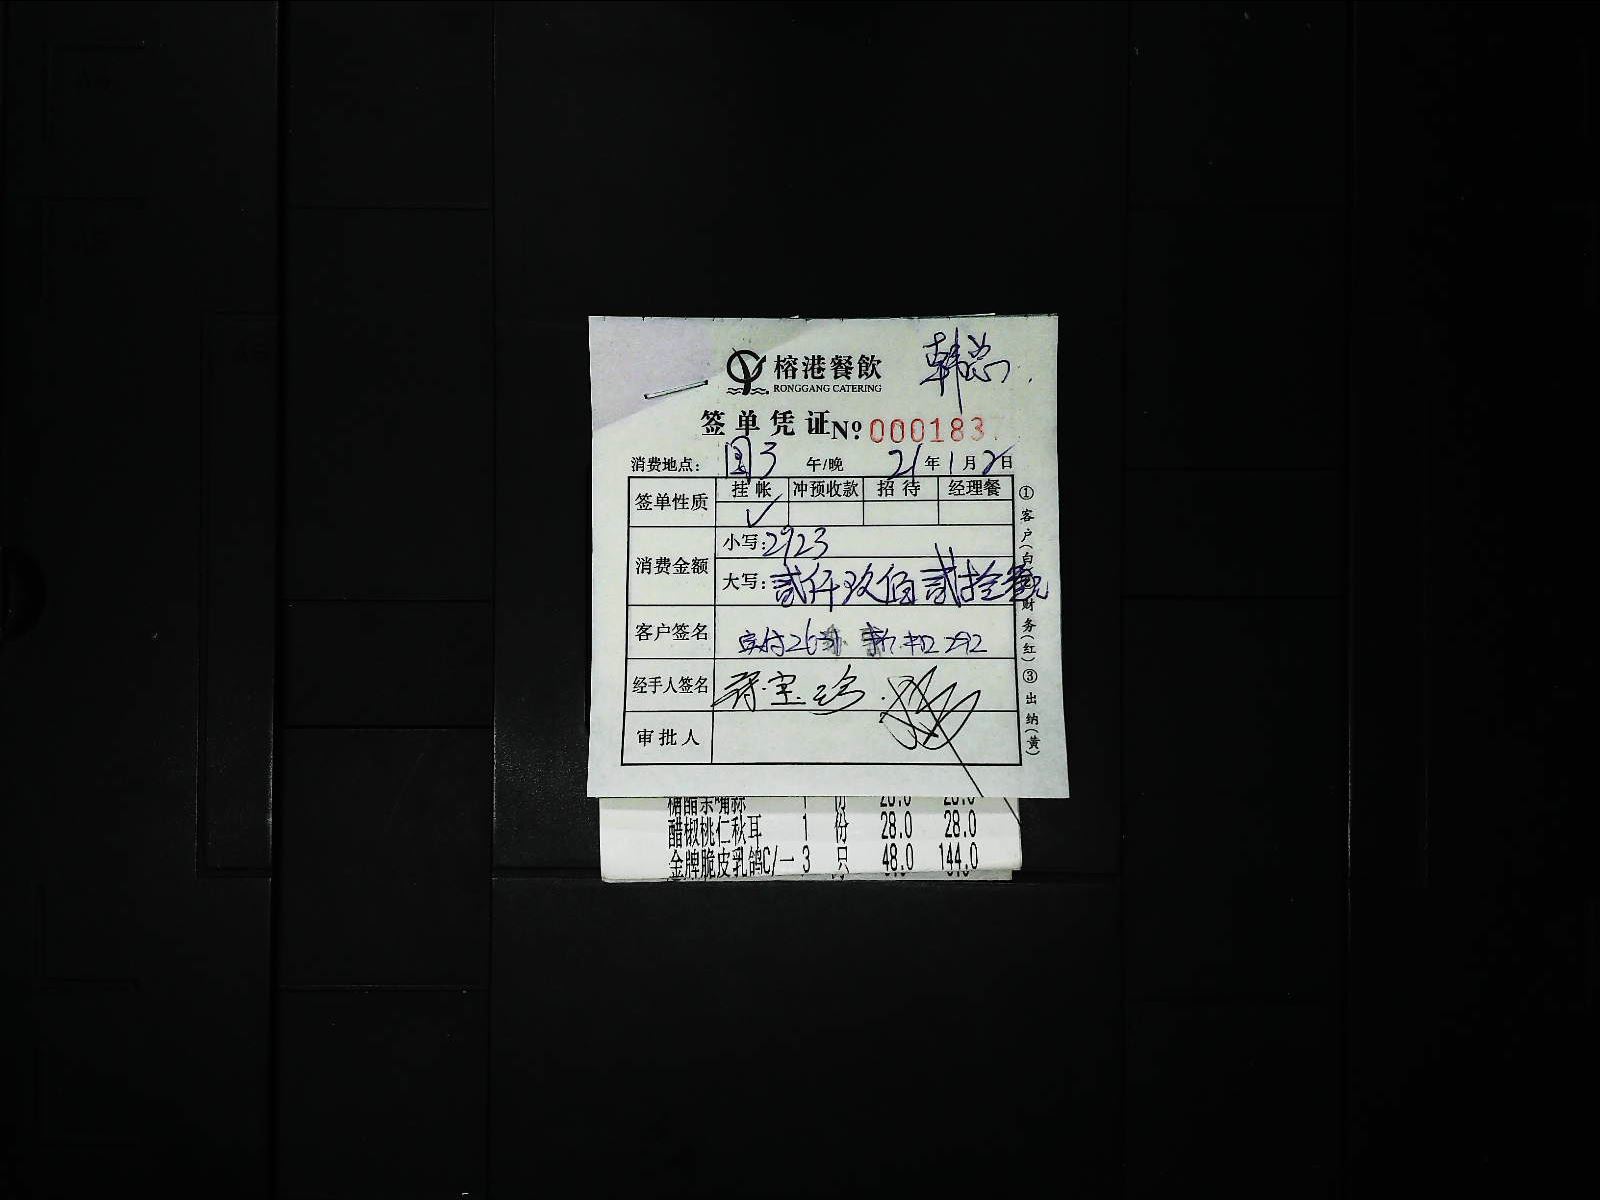 榕港餐飲 韩总
RONGGANG CATERING
签单凭证 No: 000183
消费地点: 国3 午/晚 21年1月2日
签单性质 挂帐 冲预收款 招待 经理餐
✓
消费金额 小写: 2923
大写: 贰仟玖佰贰拾叁元
客户签名 实付2631 折扣292
经手人签名
审批人
①客户(白)
财务(红)③出纳(黄)
醋椒桃仁秋耳 1 份 28.0 28.0
金牌脆皮乳鸽C/一 3 只 48.0 144.0